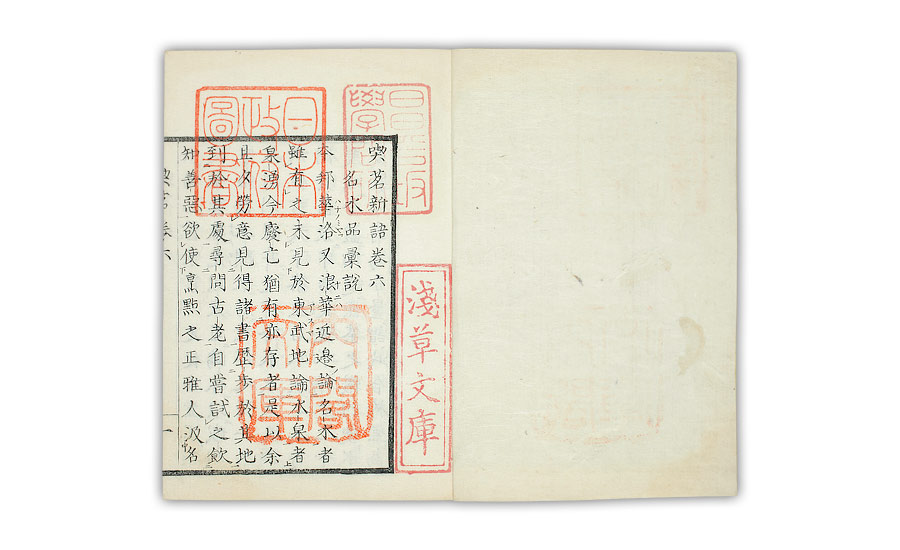 淺草文庫
昌平坂學問所
日本政府圖書
內閣文庫
喫茗新語卷六
名水品彙說
本邦華洛又浪華近邊論名水者
雖有之未見於東武地論水泉者
泉湧今廢亡猶有亦存者是以余
旦夕勞意見得諸書歷步於其地
到於其處尋問古老自嘗試之飲
知善惡欲使烹點之正雅人汲名
一